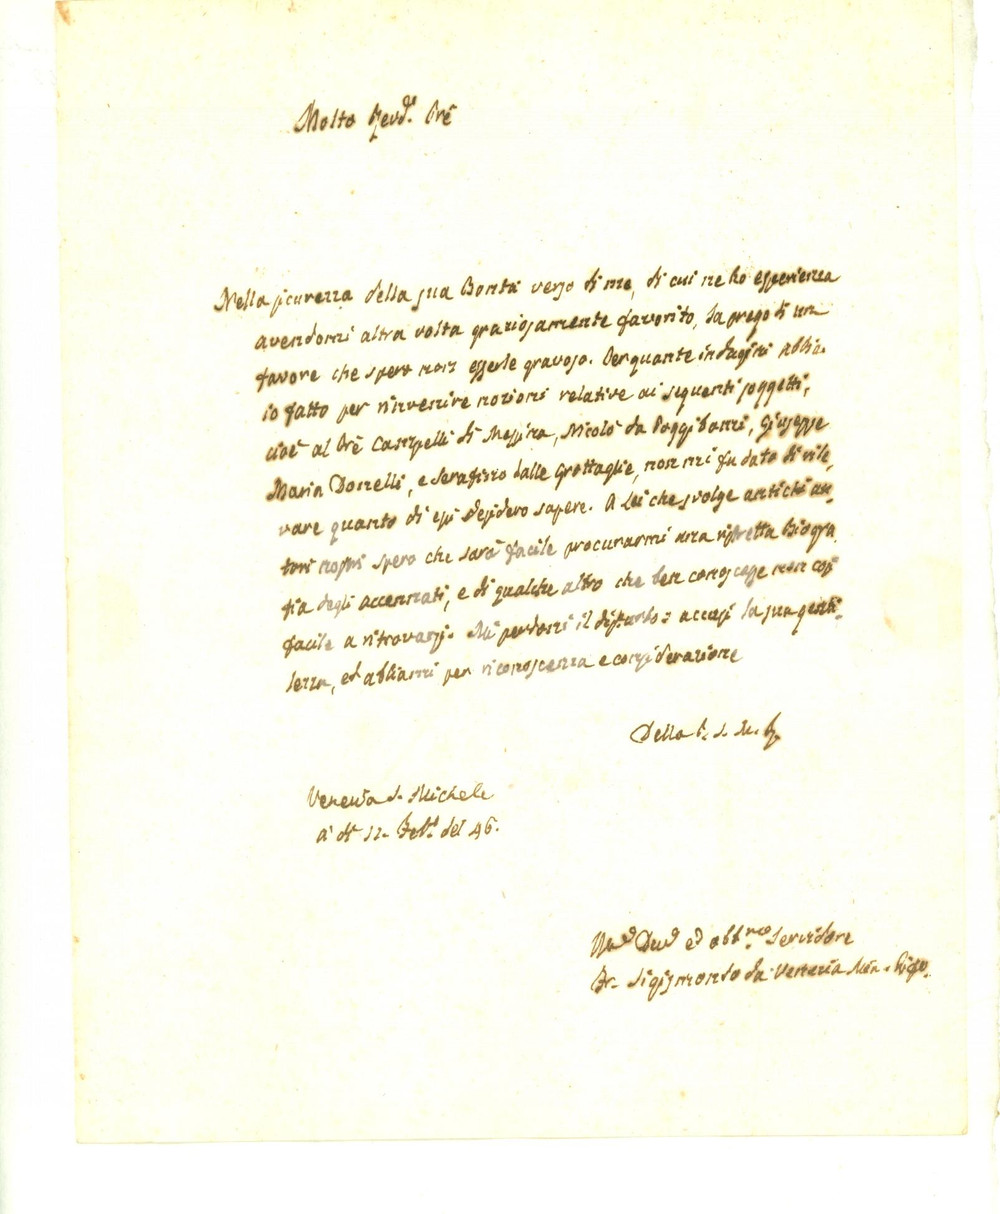 Molto Revd.e Prē
Nella sicurezza della sua Bontà verso di me, di cui ne ho esperienza
avendomi altra volta graziosamente favorito, la prego di un
favore che spero non esserle gravoso. Per quante indagini abbia
io fatto per rinvenire nozioni relative ai seguenti soggetti,
cioè al Prē Campelli di Messina, Nicolò da Poggibonzi, Giuseppe
Maria Donelli, e Serafino dalle Grottaglie, non mi fu dato di rile,
vare quanto di essi desidero sapere. A lei che svolge antichi au,
tori nostri spero che sarà facile procurarmi una ristretta biogra,
fia degli accennati, e di qualche altro che ben conoscesse non così
facile a ritrovarsi. Mi perdoni il disturbo: accusi la sua genti,
lezza, ed abbiami per riconoscenza e considerazione
Della P. S. M. R.
Venezia S. Michele
a' dì 12. Feb.o del 46.
Um.o Dev.o ed obb.mo Servidore
Fr. Sigismondo da Venezia Min. Rifor.